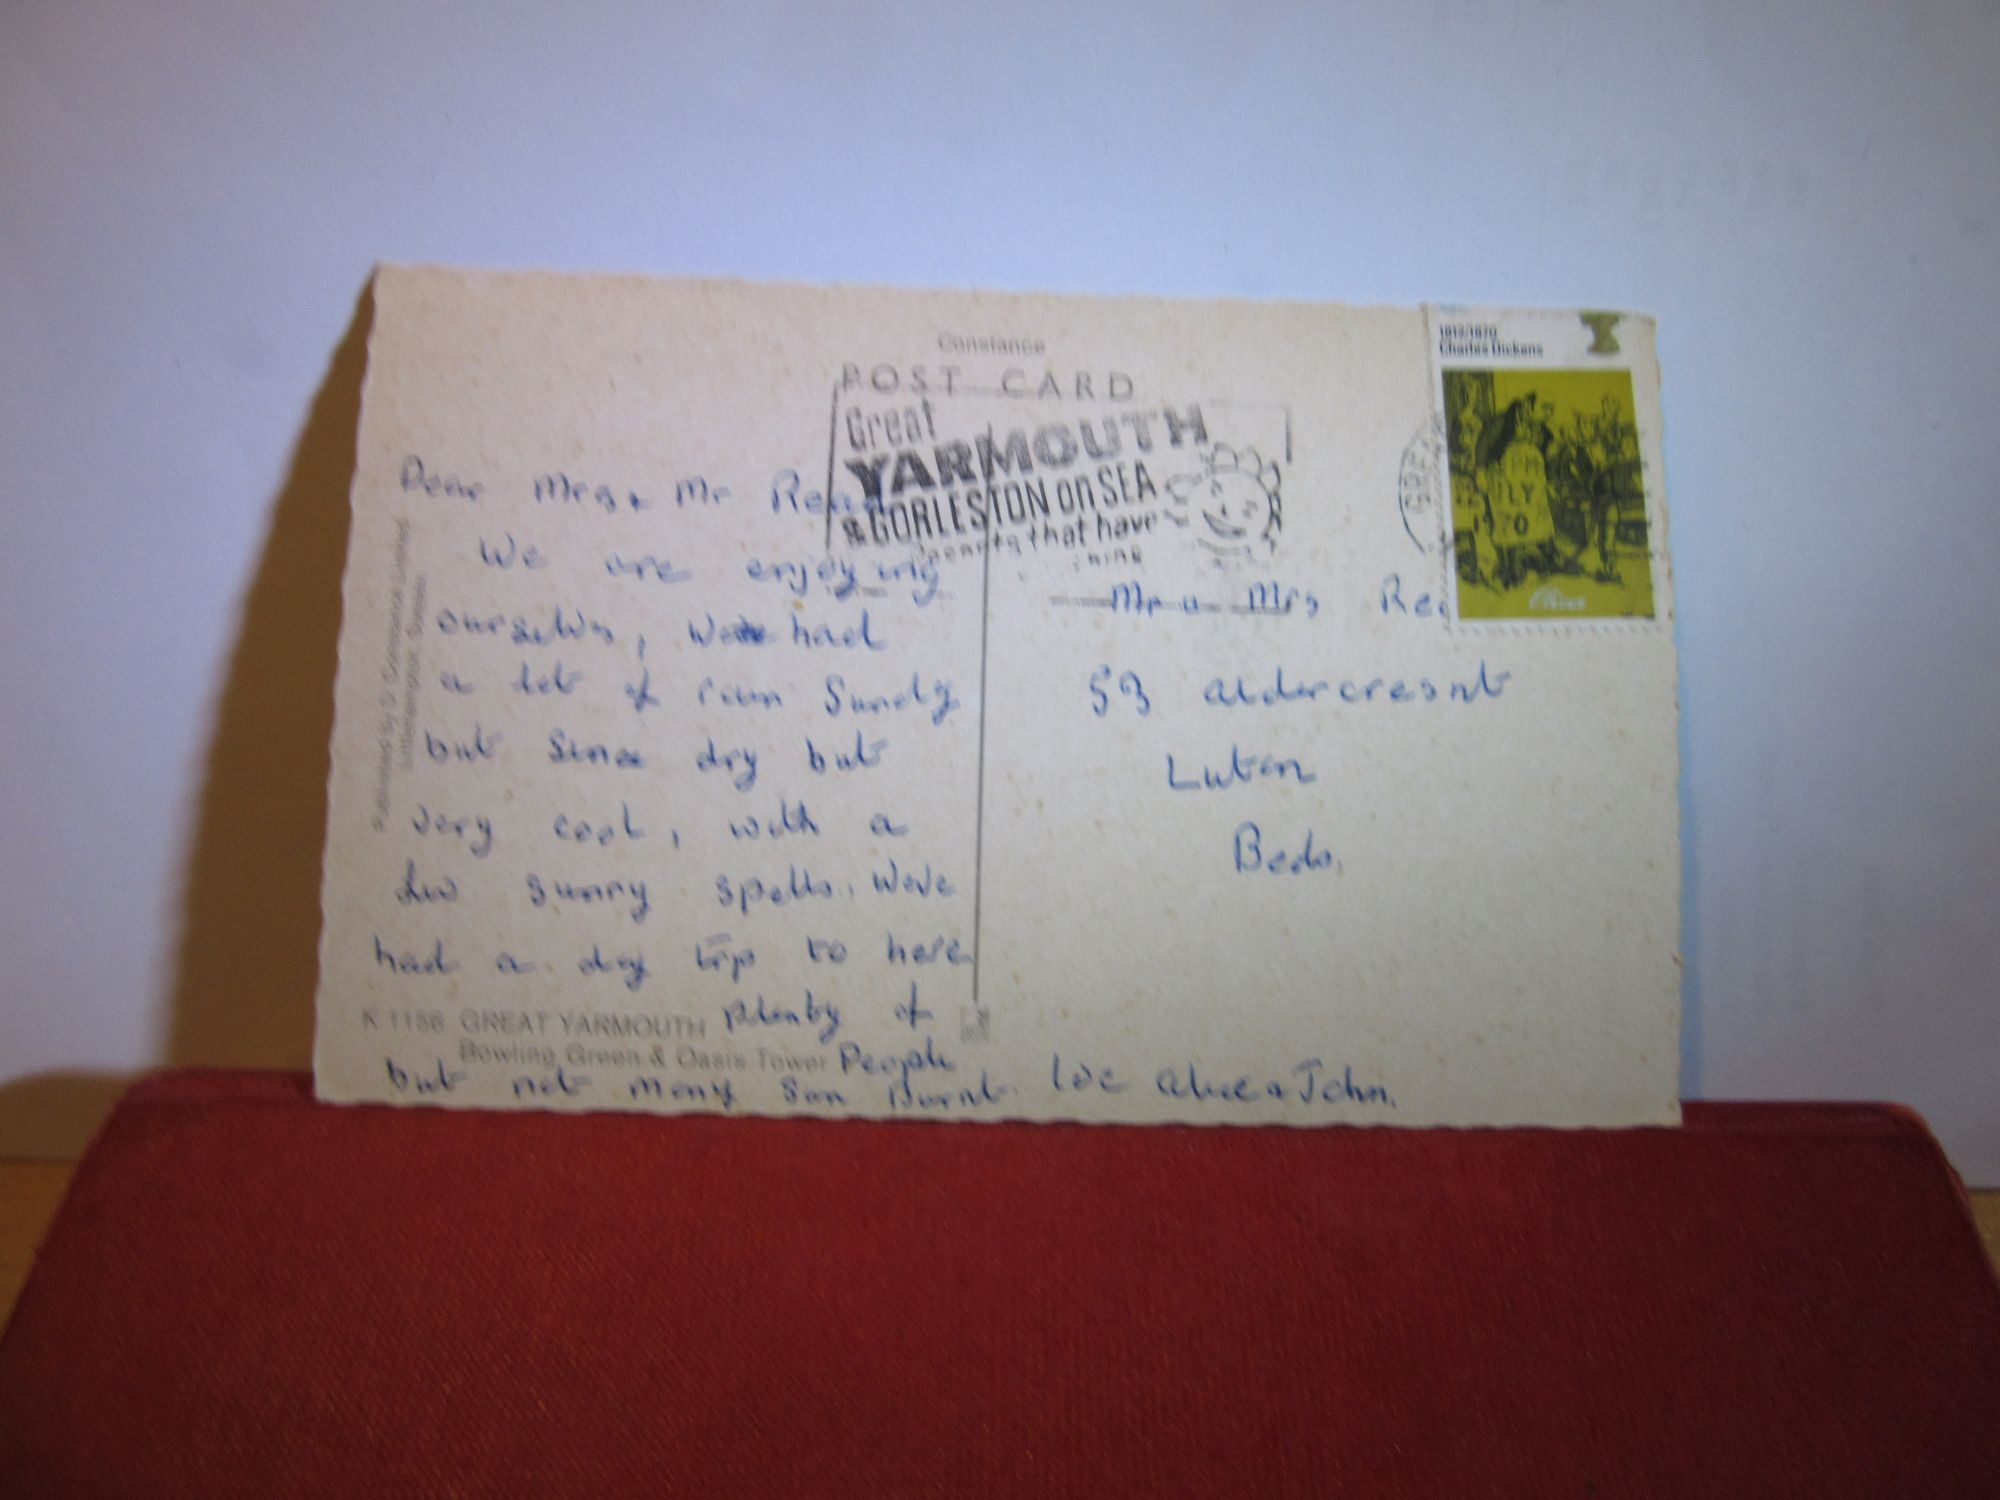 Constance
POST CARD
Great
YARMOUTH
& GORLESTON on SEA
that have
1812/1970
Charles Dickens
GREAT
PM
1970
Dear Mrs & Mr
We are enjoying
ourselves, We had
a lot of rain Sundy
but since dry but
very cool, with a
few sunny spells. Weve
had a day trip to here
plenty of
People
but not many Sun Burnt. Love Alice & John.
Mr & Mrs
53 aldercresnt
Luton
Beds.
K 1156 GREAT YARMOUTH
Bowling Green & Oasis Tower
Published by D. Constance Limited
Littlehampton, Sussex